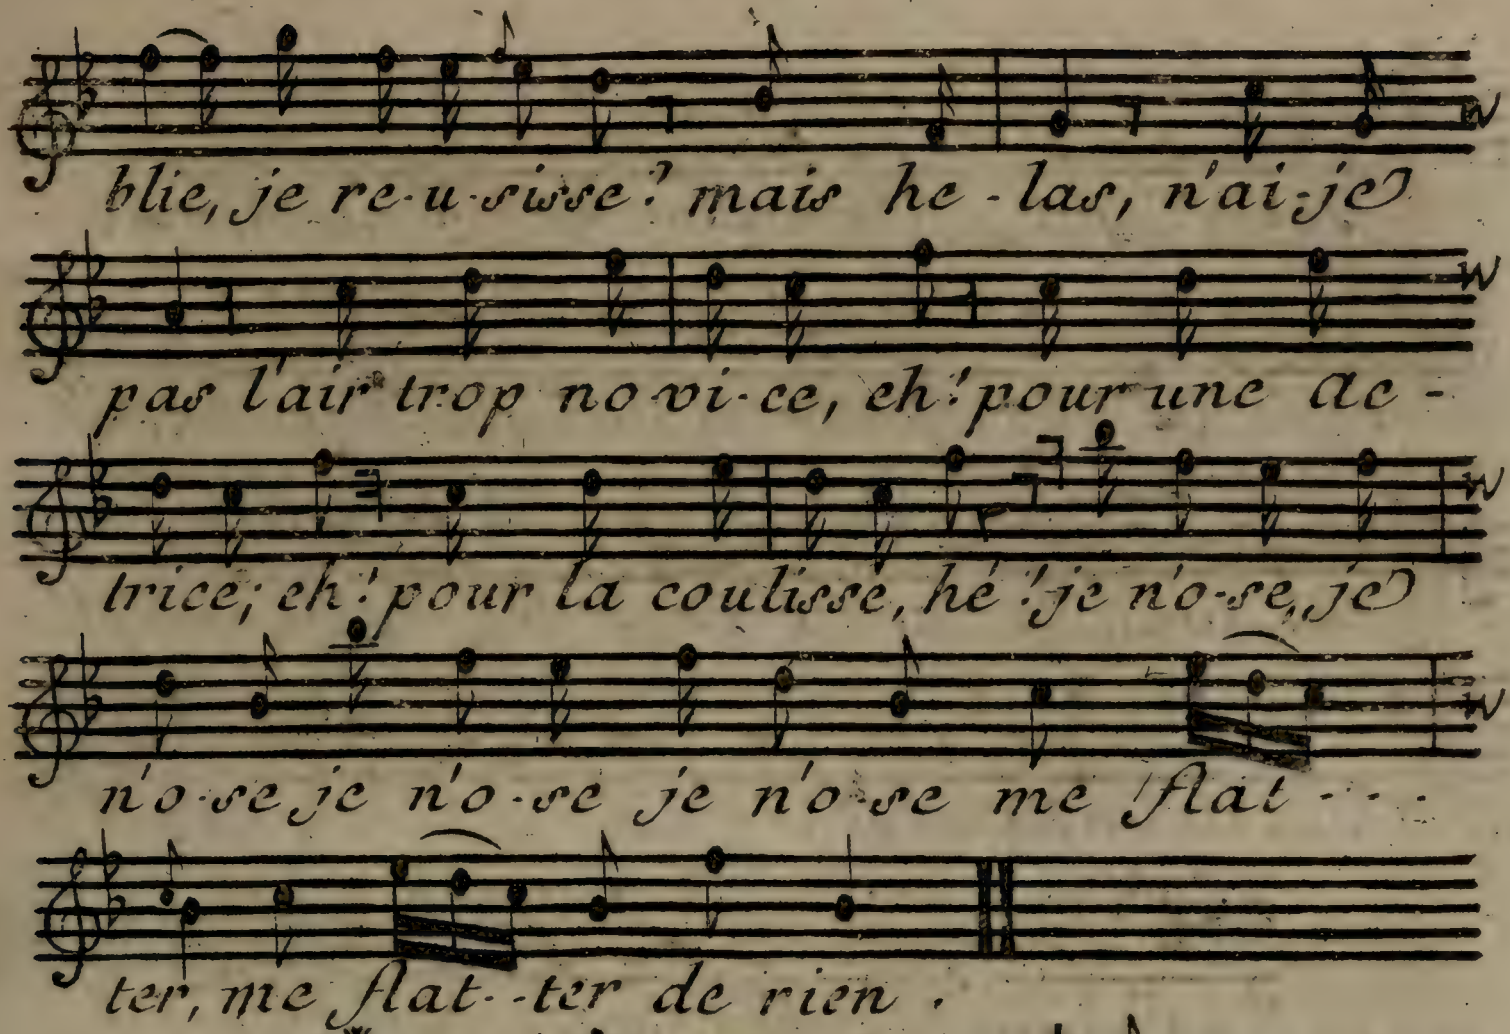 blie, je re-u-sisse? mais he-las, n'ai-je
pas l'air trop no-vi-ce, eh! pour une ac-
trice; eh! pour la coulisse, hé! je n'o-se, je
n'o-se je n'o-se je n'o-se me flat - - -
ter, me flat--ter de rien.